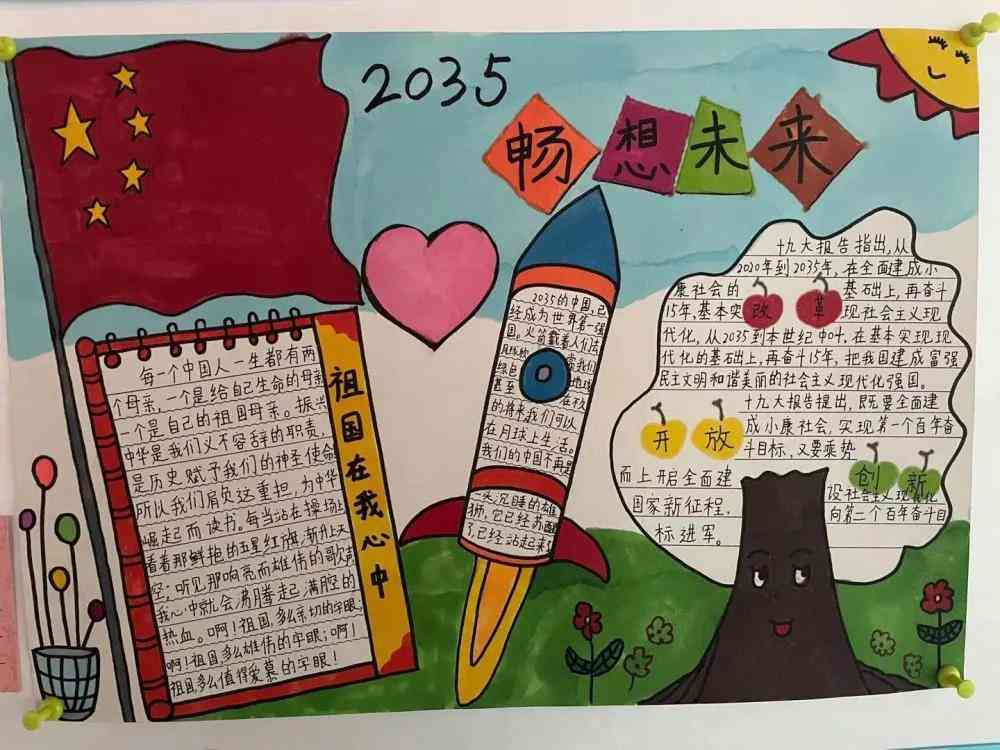 2035
畅想未来
每一个中国人一生都有两
个母亲,一个是给自己生命的母亲
一个是自己的祖国母亲。振兴
中华是我们义不容辞的职责,
是历史赋予我们的神圣使命
所以我们肩负这重担,为中华
崛起而读书。每当站在操场上
看着那鲜艳的五星红旗,渐升上天
空;听见那响亮而雄伟的歌声
我心中就会沸腾起满腔的
热血。啊!祖国,多么亲切的字眼;
啊!祖国,多么雄伟的字眼;啊!
祖国,多么值得爱慕的字眼!
祖国在我心中
2035的中国,已
经成为世界第一强
国。火箭载着人们去
绿色
甚至
的将来我们可以
在月球上生活。
我们的中国不再是
一头沉睡的雄
狮,它已经苏醒
了,已经站起来
十九大报告指出,从
2020年到2035年,在全面建成小
康社会的基础上,再奋斗
15年,基本实现社会主义现
代化,从2035到本世纪中叶,在基本实现现
代化的基础上,再奋斗15年,把我国建成富强
民主文明和谐美丽的社会主义现代化强国。
改革
十九大报告提出,既要全面建
成小康社会,实现第一个百年奋
斗目标,又要乘势
而上开启全面建设社会主义现代化
国家新征程,向第二个百年奋斗目
标进军。
开放
创新